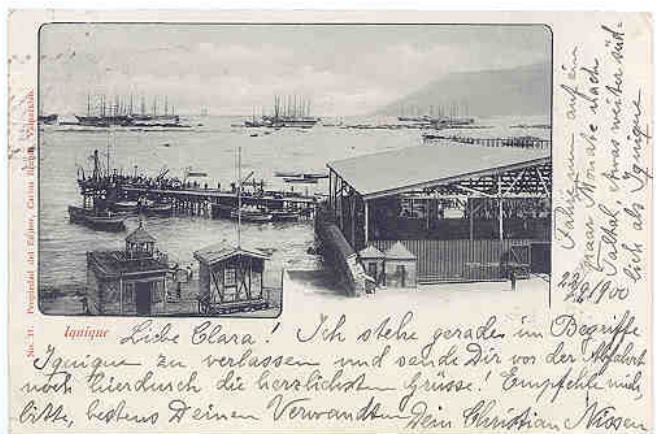 No. 11. Propiedad del Editor, Carlos Brandt, Valparaiso.
Iquique
Liebe Clara! Ich stehe gerade im Begriffe
Iquique zu verlassen und sende Dir vor der Abfahrt
noch hierdurch die herzlichsten Grüsse! Empfehle mich,
bitte, bestens Deinen Verwandten Dein Christian Nissen
Fahre nun auf ein
paar Monate nach
Taltal, etwas weiter süd-
lich als Iquique
22/9 1900